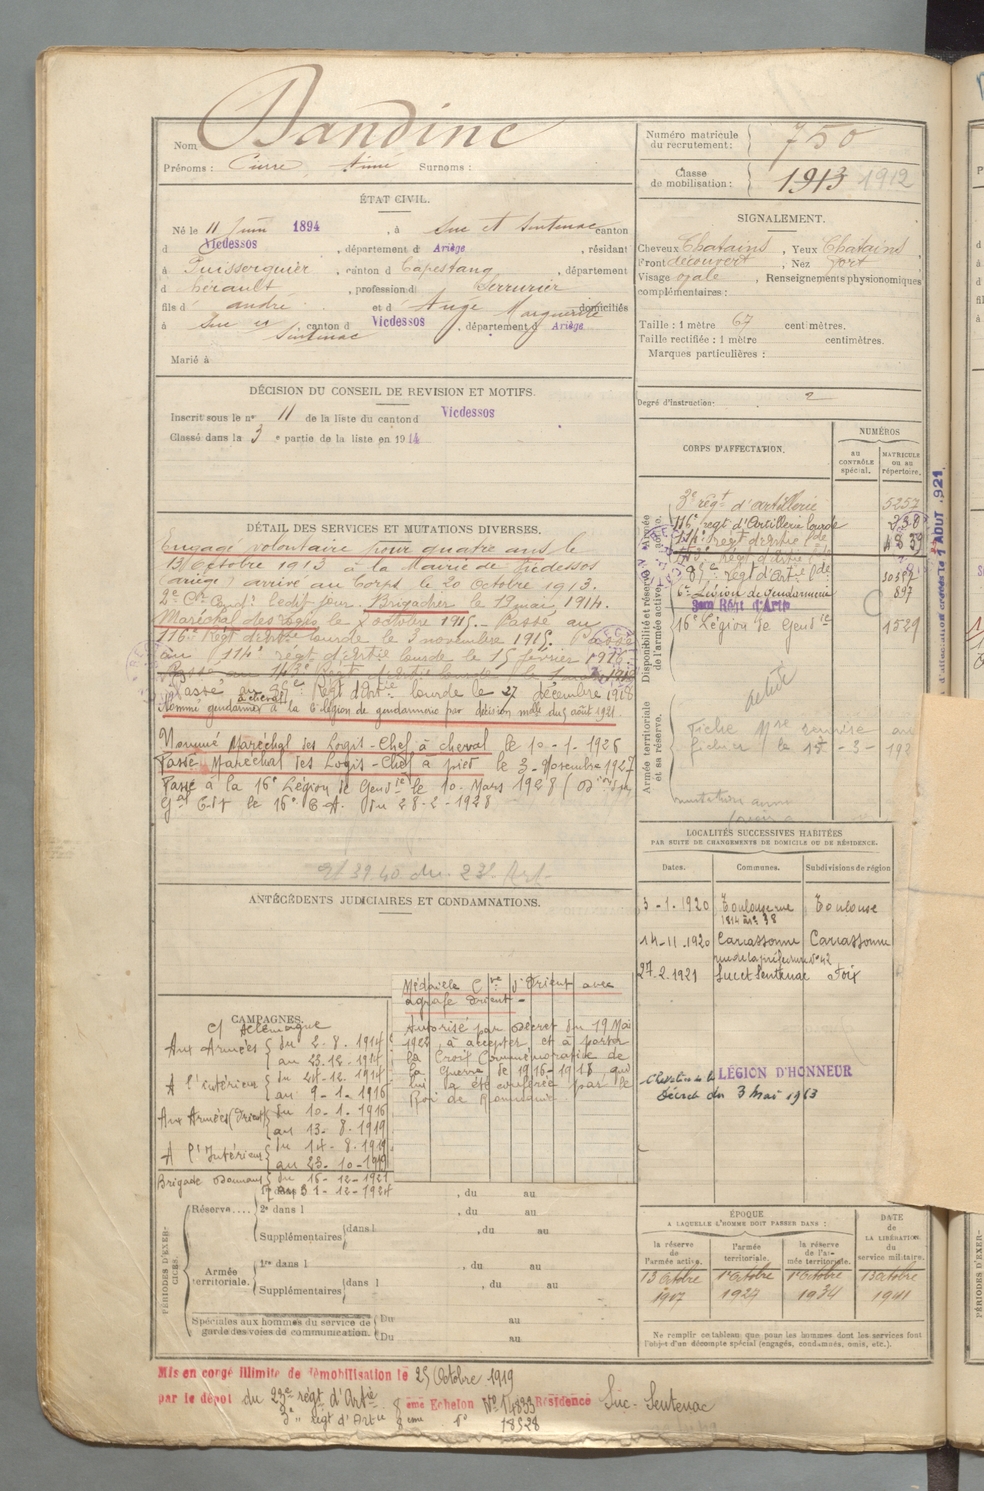 Nom Dandine
Prénoms : Pierre Aimé Surnoms :
ÉTAT CIVIL.
Né le 11 Juin 1894, à Suc et Sentenac canton
d Vicdessos, département d Ariège, résidant
à Puisserguier, canton d Capestang, département
d Hérault, profession d Serrurier
fils d André et d Augé Marguerite domiciliés
à Suc et Sentenac, canton d Vicdessos, département d Ariège
Marié à
DÉCISION DU CONSEIL DE REVISION ET MOTIFS.
Inscrit sous le n° 11 de la liste du canton d Vicdessos
Classé dans la 3e partie de la liste en 1914
DÉTAIL DES SERVICES ET MUTATIONS DIVERSES.
Engagé volontaire pour quatre ans le
13 Octobre 1913 à la Mairie de Vicdessos
(Ariège) arrivé au Corps le 20 Octobre 1913.
2e Cr Condr ledit jour. Brigadier le 19 mai 1914.
Maréchal des logis le 1 octobre 1915. Passé au
116e Régt d'Artie lourde le 3 novembre 1915. Passé
au 114e régt d'Artie lourde le 15 février 1918.
Passé au 143e Régt d'Artie lourde le
Passé au 87e Régt d'Artie lourde le 27 décembre 1918
Nommé gendarme à cheval à la 6e légion de gendarmerie par décision mlle du 5 août 1921.
Nommé Maréchal des Logis-Chef à cheval le 10-1-1926
Passé Maréchal des Logis-Chef à pied le 3 Novembre 1927
Passé à la 16e Légion de Gendie le 10 Mars 1928 (
Gal Cdt le 16e C.A. du 28-2-1928
Rt 39.40 du 23e Art
ANTÉCÉDENTS JUDICIAIRES ET CONDAMNATIONS.
CAMPAGNES.
C/ Allemagne
Aux Armées du 2-8-1914
au 23-12-1914
A l'intérieur du 24-12-1914
au 9-1-1916
Aux Armées (Orient) du 10-1-1916
au 13-8-1919
A l'Intérieur du 14-8-1919
au 25-10-1919
Brigade du 16-12-1921
au 31-12-1924
Médaille Cve d'Orient avec
agrafe Orient -
Autorisé par Décret du 19 Mai
1922 à accepter et à porter
la Croix Commémorative de
la Guerre de 1916-1918 que
lui a été conférée par le
Roi de Roumanie.
PÉRIODES D'EXERCICES.
Réserve....
, du au
2e dans l , du au
Supplémentaires dans l , du au
Armée territoriale.
1re dans l , du au
Supplémentaires dans l , du au
Spéciales aux hommes du service de garde des voies de communication.
Du au
Du au
Numéro matricule du recrutement : 750
Classe de mobilisation : 1913 1912
SIGNALEMENT.
Cheveux Chatains, Yeux Chatains
Front découvert, Nez fort
Visage ovale, Renseignements physionomiques
complémentaires :
Taille : 1 mètre 67 centimètres.
Taille rectifiée : 1 mètre centimètres.
Marques particulières :
Degré d'instruction : 2
CORPS D'AFFECTATION.
NUMÉROS
AU CONTRÔLE spécial.
MATRICULE ou au répertoire.
Disponibilité et réserve de l'armée active.
3e régt d'artillerie 5257
116e régt d'Artillerie lourde 238
114e régt d'Artie lde 4839
143e Régt d'Artie lde
87e régt d'Artie lde 10387
6e Légion de gendarmerie 897
3ème Régt d'Artie
16e Légion de Gendie 1529
Armée territoriale et sa réserve.
active
Fiche Mre remise au
fichier le 15-3-192
mutation
LOCALITÉS SUCCESSIVES HABITÉES
PAR SUITE DE CHANGEMENTS DE DOMICILE OU DE RÉSIDENCE.
Dates. Communes. Subdivisions de région
3-1-1920 Toulouse rue Toulouse
14-11-1920 Carcassonne Carcassonne
rue de la préfecture n° 42
27.2.1921 Suc et Sentenac Foix
Chevalier de la LÉGION D'HONNEUR
Décret du 3 Mai 1963
ÉPOQUE
A LAQUELLE L'HOMME DOIT PASSER DANS :
DATE DE LA LIBÉRATION du service militaire.
la réserve de l'armée active.
l'armée territoriale.
la réserve de l'armée territoriale.
13 Octobre 1917
1er Octobre 1927
1er Octobre 1934
13 Octobre 1941
Ne remplir ce tableau que pour les hommes dont les services font
l'objet d'un décompte spécial (engagés, condamnés, omis, etc.).
Mis en congé illimité de démobilisation le 25 Octobre 1919
par le dépôt du 23e régt d'Artie 8eme Echelon N° 14893 Résidence Suc-Sentenac
3e régt d'Artie 8eme 18528